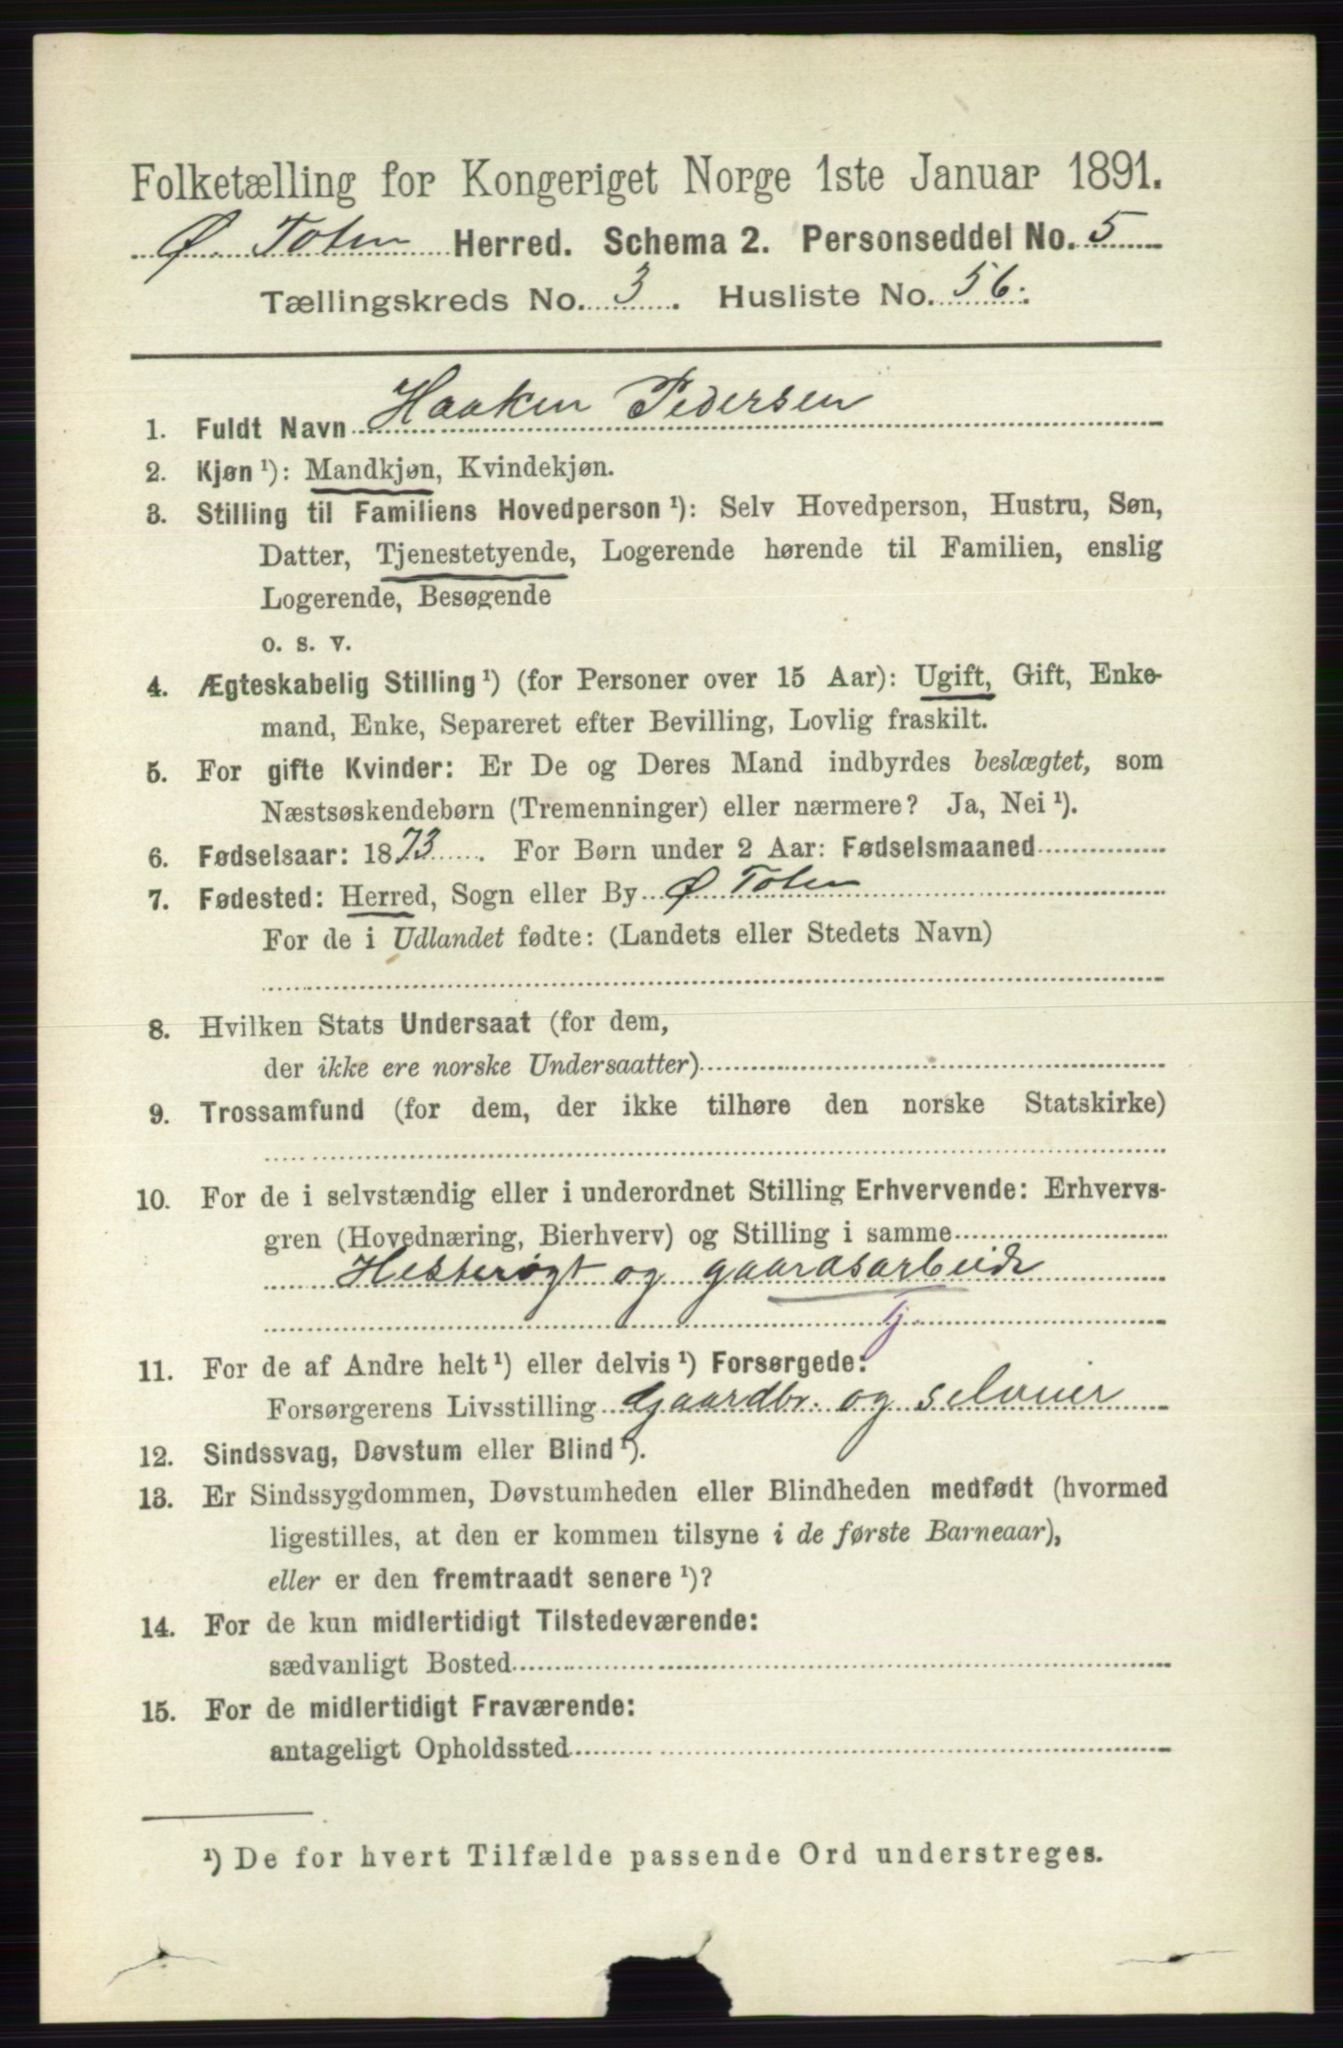 Folketælling for Kongeriget Norge 1ste Januar 1891.
Ø. Toten Herred. Schema 2. Personseddel No. 5
Tællingskreds No. 3. Husliste No. 56.
1. Fuldt Navn Haaken Pedersen
2. Kjøn ¹): Mandkjøn, Kvindekjøn.
3. Stilling til Familiens Hovedperson ¹): Selv Hovedperson, Hustru, Søn,
Datter, Tjenestetyende, Logerende hørende til Familien, enslig
Logerende, Besøgende
o. s. v.
4. Ægteskabelig Stilling ¹) (for Personer over 15 Aar): Ugift, Gift, Enke-
mand, Enke, Separeret efter Bevilling, Lovlig fraskilt.
5. For gifte Kvinder: Er De og Deres Mand indbyrdes beslægtet, som
Næstsøskendebørn (Tremenninger) eller nærmere? Ja, Nei ¹).
6. Fødselsaar: 1873. For Børn under 2 Aar: Fødselsmaaned
7. Fødested: Herred, Sogn eller By Ø Toten
For de i Udlandet fødte: (Landets eller Stedets Navn)
8. Hvilken Stats Undersaat (for dem,
der ikke ere norske Undersaatter)
9. Trossamfund (for dem, der ikke tilhøre den norske Statskirke)
10. For de i selvstændig eller i underordnet Stilling Erhvervende: Erhvervs-
gren (Hovednæring, Bierhverv) og Stilling i samme
Hesterøgt og gaardsarbeide
Tj.
11. For de af Andre helt ¹) eller delvis ¹) Forsørgede:
Forsørgerens Livsstilling Gaardbr. og selveier
12. Sindssvag, Døvstum eller Blind ¹).
13. Er Sindssygdommen, Døvstumheden eller Blindheden medfødt (hvormed
ligestilles, at den er kommen tilsyne i de første Barneaar),
eller er den fremtraadt senere ¹)?
14. For de kun midlertidigt Tilstedeværende:
sædvanligt Bosted
15. For de midlertidigt Fraværende:
antageligt Opholdssted
¹) De for hvert Tilfælde passende Ord understreges.